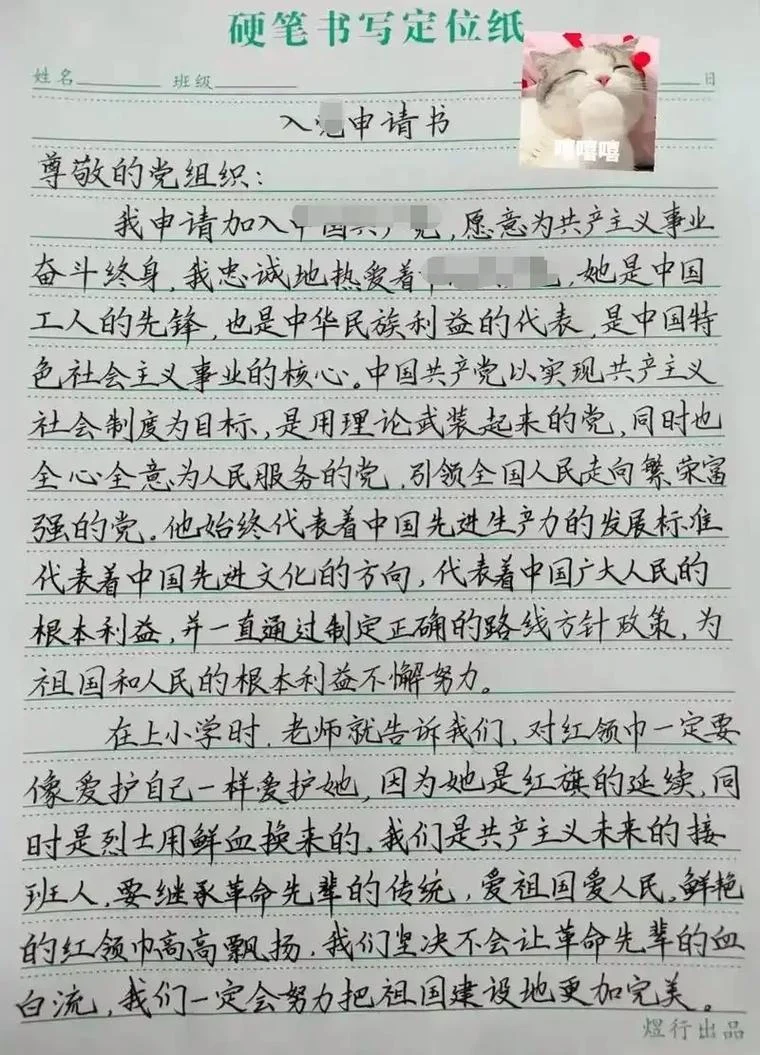 硬笔书写定位纸
姓名 班级 日
嘻嘻嘻
入申请书
尊敬的党组织：
我申请加入中国共产党，愿意为共产主义事业
奋斗终身，我忠诚地热爱着，她是中国
工人的先锋，也是中华民族利益的代表，是中国特
色社会主义事业的核心。中国共产党以实现共产主义
社会制度为目标，是用理论武装起来的党，同时也
全心全意为人民服务的党，引领全国人民走向繁荣富
强的党。他始终代表着中国先进生产力的发展标准
代表着中国先进文化的方向，代表着中国广大人民的
根本利益，并一直通过制定正确的路线方针政策，为
祖国和人民的根本利益不懈努力。
在上小学时，老师就告诉我们，对红领巾一定要
像爱护自己一样爱护她，因为她是红旗的延续，同
时是烈士用鲜血换来的，我们是共产主义未来的接
班人，要继承革命先辈的传统，爱祖国爱人民，鲜艳
的红领巾高高飘扬，我们坚决不会让革命先辈的血
白流，我们一定会努力把祖国建设地更加完美。
煜行出品